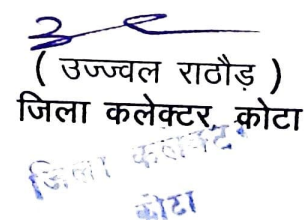 ( उज्ज्वल राठौड़ )
जिला कलेक्टर, कोटा
जिला कलक्टर
कोटा